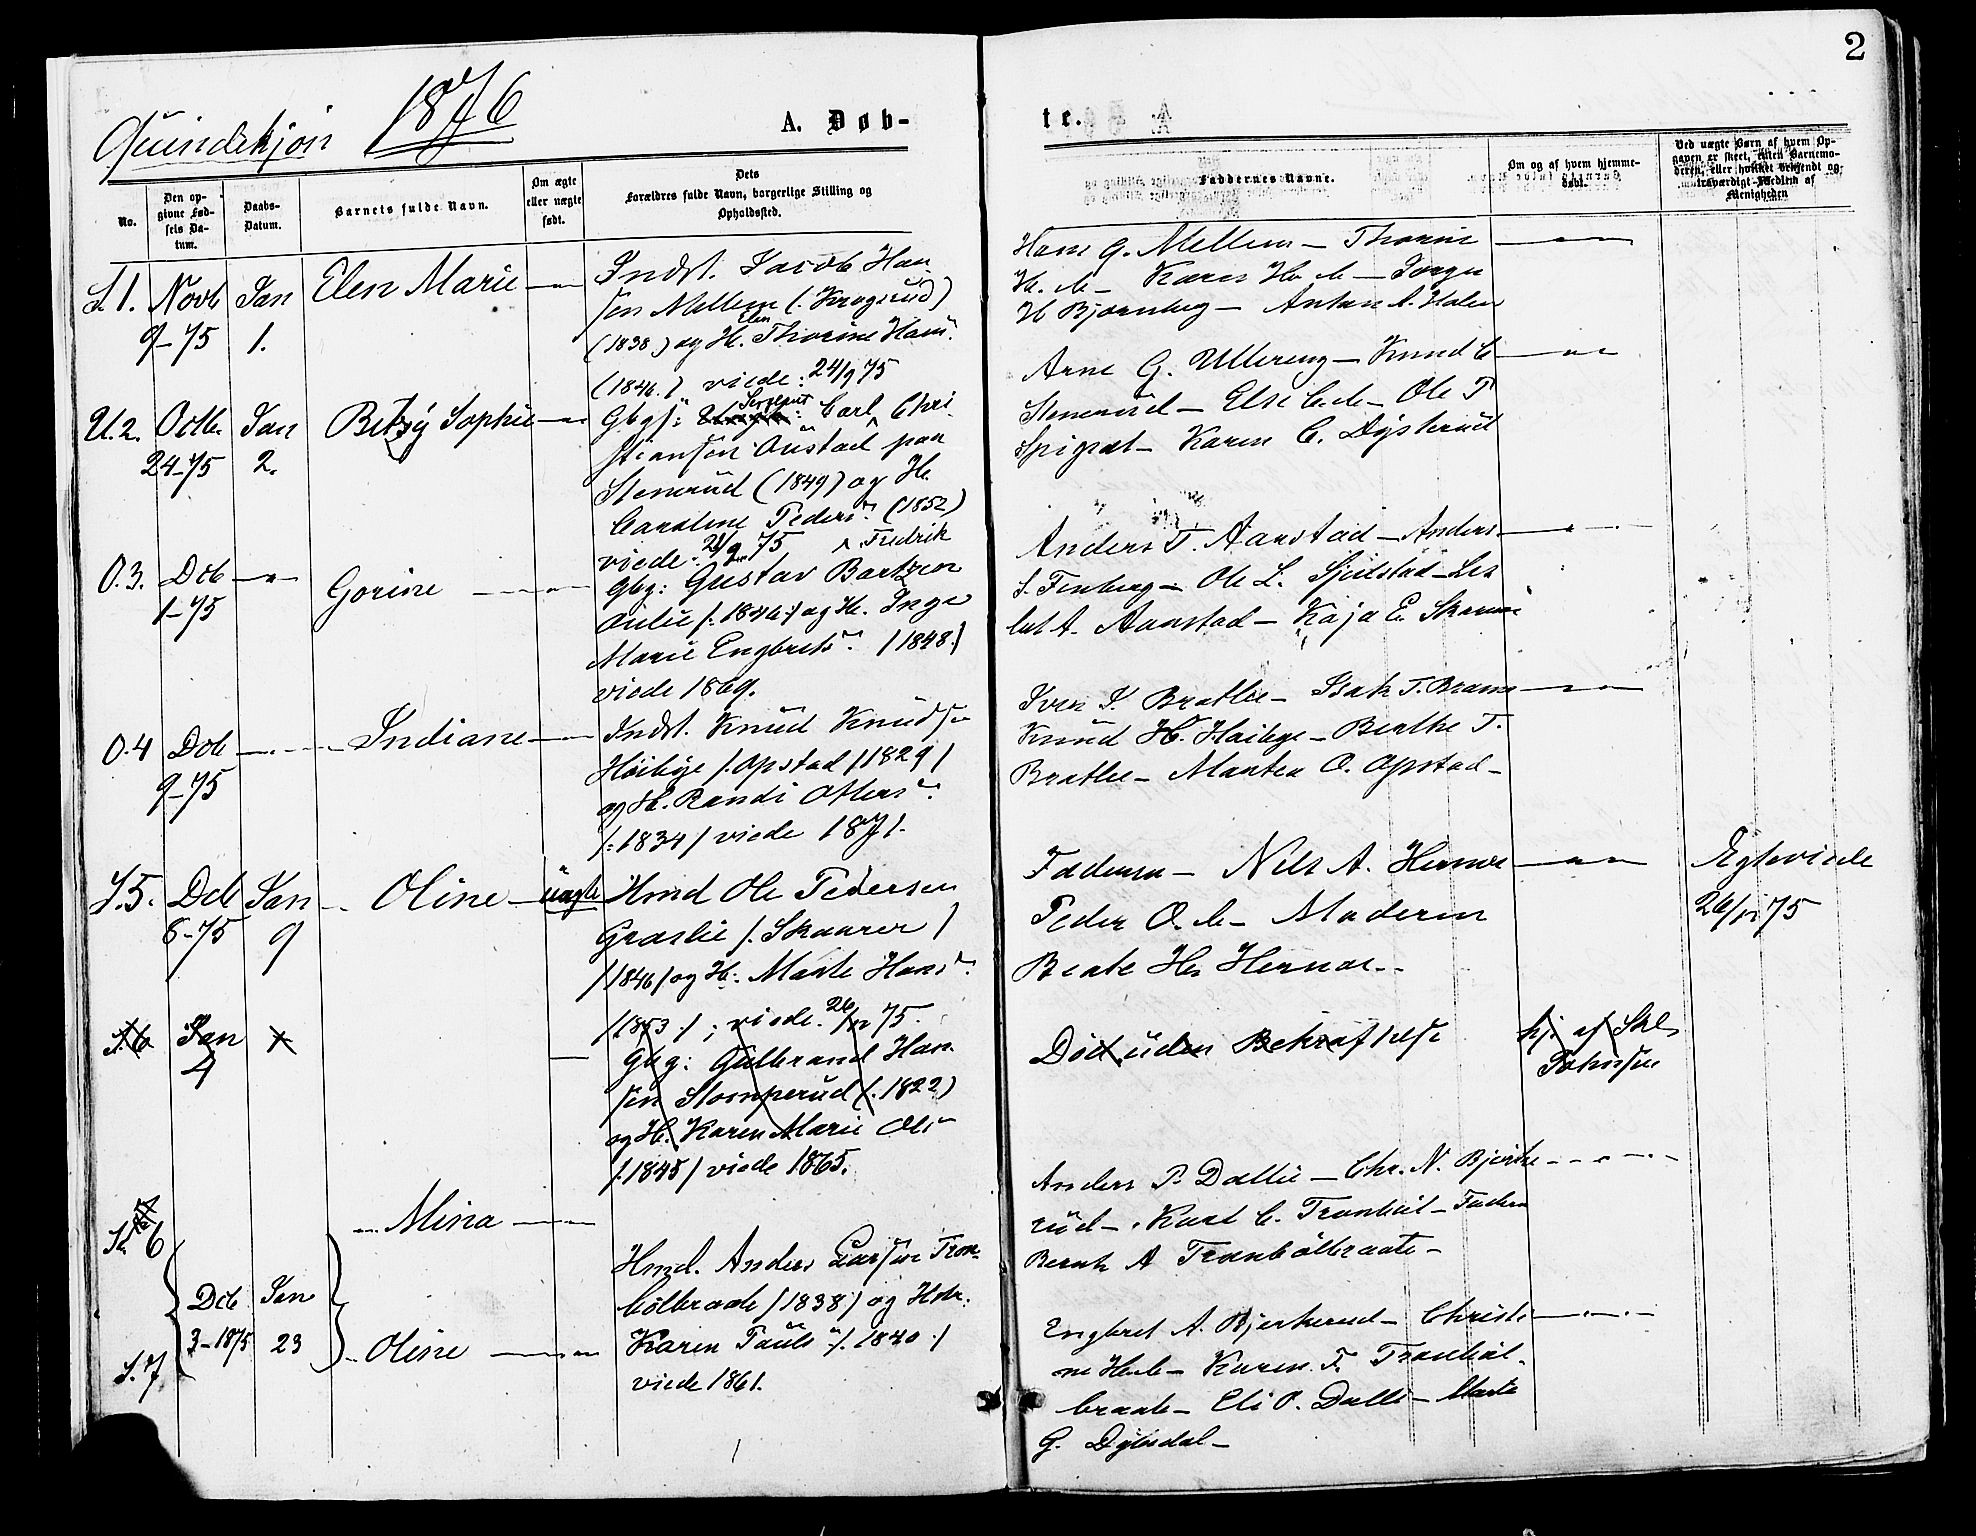 2
Quindekjøn 1876
A. Døb-
te.
No.
Den op-
givne Fød-
sels Da-
tum.
Daabs-
Datum.
Barnets fulde Navn.
Om ægte
eller uægte
født.
Dets
Forældres fulde Navn, borgerlige Stilling og
Opholdssted.
Faddernes Navne.
Om og af hvem hjemme-
døbt.
Ved uægte Børn af hvem Op-
gaven er skeet, enten Barnemo-
deren, eller hvilket bekjendt og
troværdigt Medlem af
Menigheden
1. Novb Jan Elen Marie Indst. Jacob Han
9-75 1. sen Mellem (: Krogsrud)
(1838.) og H. Elen Thorine Hans.
(1846.) viede: 24/9 75
Hans G. Mellem — Thorine
Karen
H Bjørnberg — Anton A. Holen
U.2. Octb. Jan Betzy Sophie Gbgs: Carl Chri
24-75 2. stiansen Austad paa
Stenerud (1849) og H.
Caroline Peders. (1852)
viede: 75
Arne G. Ullereng — Knud C
Stenerud — Else — Ole T
Spigset — Karen C. Dysterud
O.3. Dcb Gorine Gbg: Gustav Fredrik Bartzen
1-75 /: 1846:/ og H. Inge
Marie Engbrets. /1848./
viede 1869.
Anders T. Aanstad — Anders
Ole L. Sjulstad
A. Aanstad — Kaja E.
O.4 Dcb Indiane Indst. Knud Knudsen
9-75 Høibye /: Opstad /1829/
og H. Randi
/: 1834/ viede 1871.
Iver I. Bratlie — Isak T.
Knud H. Høibye — Berthe T.
Bratlie — Marthea O. Opstad —
5. Dcb Jan Oline uægte Hmd Ole Pedersen
8-75 9 Graslie /: Skaarer /
/1846/ og H: Marte Hans.
/1853:/; viede. 26/12 75.
Faderen — Nils A. Hernæs
Peder O. — Moderen
Beate H. Hernæs
Egteviede
26/12 75
Jan
4
Gbg: Gulbrand Han
sen Stomperud (: 1822)
og H. Karen Marie Ols
/: 1845/ viede 1865.
Død uden Bekræftelse
hj. af
Johnsen
6 Mina
Dcb Jan
3-1875 23
7 Oline
Hmd. Anders Larsen Tron-
bølbraate /1838/ og H
Karen Pauls /: 1840:/
viede 1861.
Anders P. Dallie — Chr. N. Bjerke
rud — Karl C. Tronbøl — Faderen
Bernt A Tronbølbraate —
Engbret A. Bjerkerud — Christi
ne — Karen P. Tronbøl-
braate — Eli P. Dalli — Marte
G. Dybsdal —